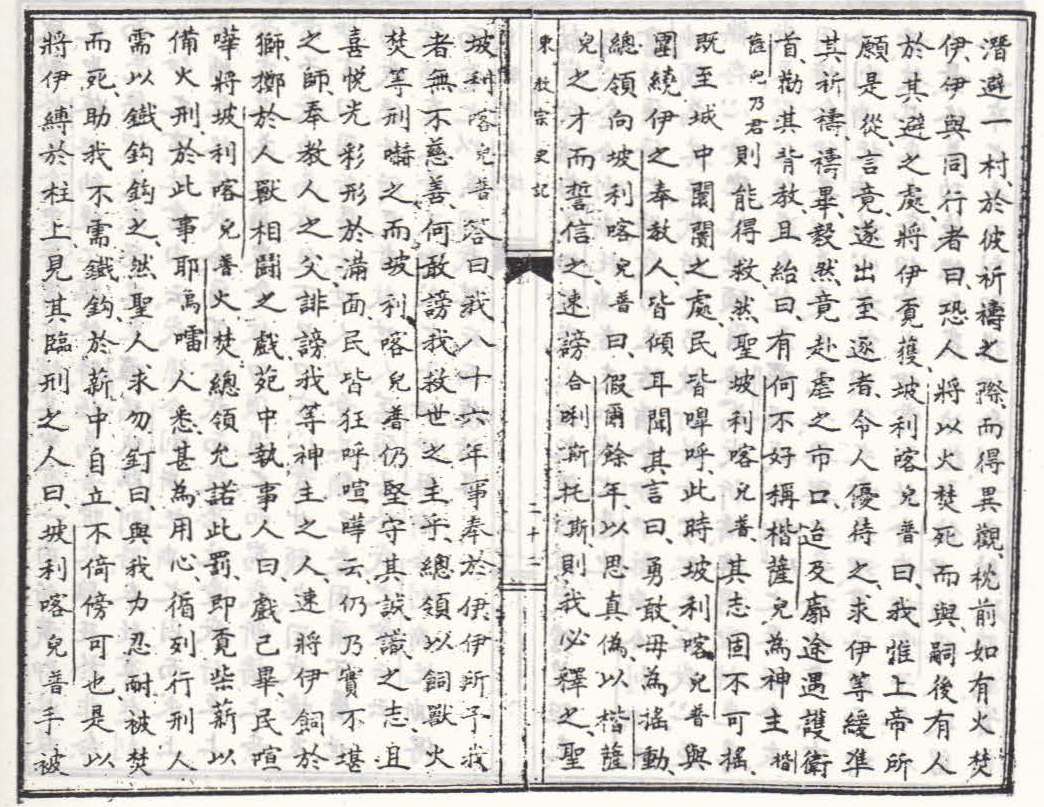 潛避一村、於彼祈禱之際、而得異觀、枕前如有火焚
伊、伊與同行者曰、恐人將以火焚死而與、嗣後有人
於其避之處、將伊覓獲、坡利喀兒普曰、我惟上帝所
願是從、言竟、遂出至逐者、令人優待之、求伊等緩准
其祈禱、禱畢、毅然竟赴虐之市口、迨及廓途遇護衛
首、勸其背教、且紿曰、有何不好稱楷薩兒、為神主楷
薩兒乃君則能得救、然聖坡利喀兒普其志固不可搖、
既至城中闤闠之處、民皆嘷呼、此時坡利喀兒普與
圍繞伊之奉教人、皆傾耳聞其言曰、勇敢、毋為搖動、
總領向坡利喀兒普曰、假爾餘年、以思真偽、以楷薩
兒之才而誓信之、速謗合唎斯托斯則我必釋之、聖
東教宗史記
二十二
坡利喀兒普答曰、我八十六年事奉於伊、伊所予我
者、無不慈善、何敢謗我救世之主乎、總領以飼獸火
焚等刑嚇之、而坡利喀兒普仍堅守其誠識之志、且
喜悅光彩形於滿面、民皆狂呼喧嘩云、仍乃實不堪
之師、奉教人之父、誹謗我等神主之人、速將伊飼於
獅、擲於人獸相鬪之戲苑中、執事人曰、戲已畢、民喧
嘩將坡利喀兒普火焚、總領允諾此罰、即覓柴薪以
備火刑、於此事耶鳥嚅人悉甚為用心、循列行刑人
需以鐵鈎鈎之、然聖人求勿釘曰、與我力忍耐被焚
而死、助我不需鐵鈎、於薪中自立、不倚傍可也、是以
將伊縛於柱上、見其臨刑之人曰、坡利喀兒普手被